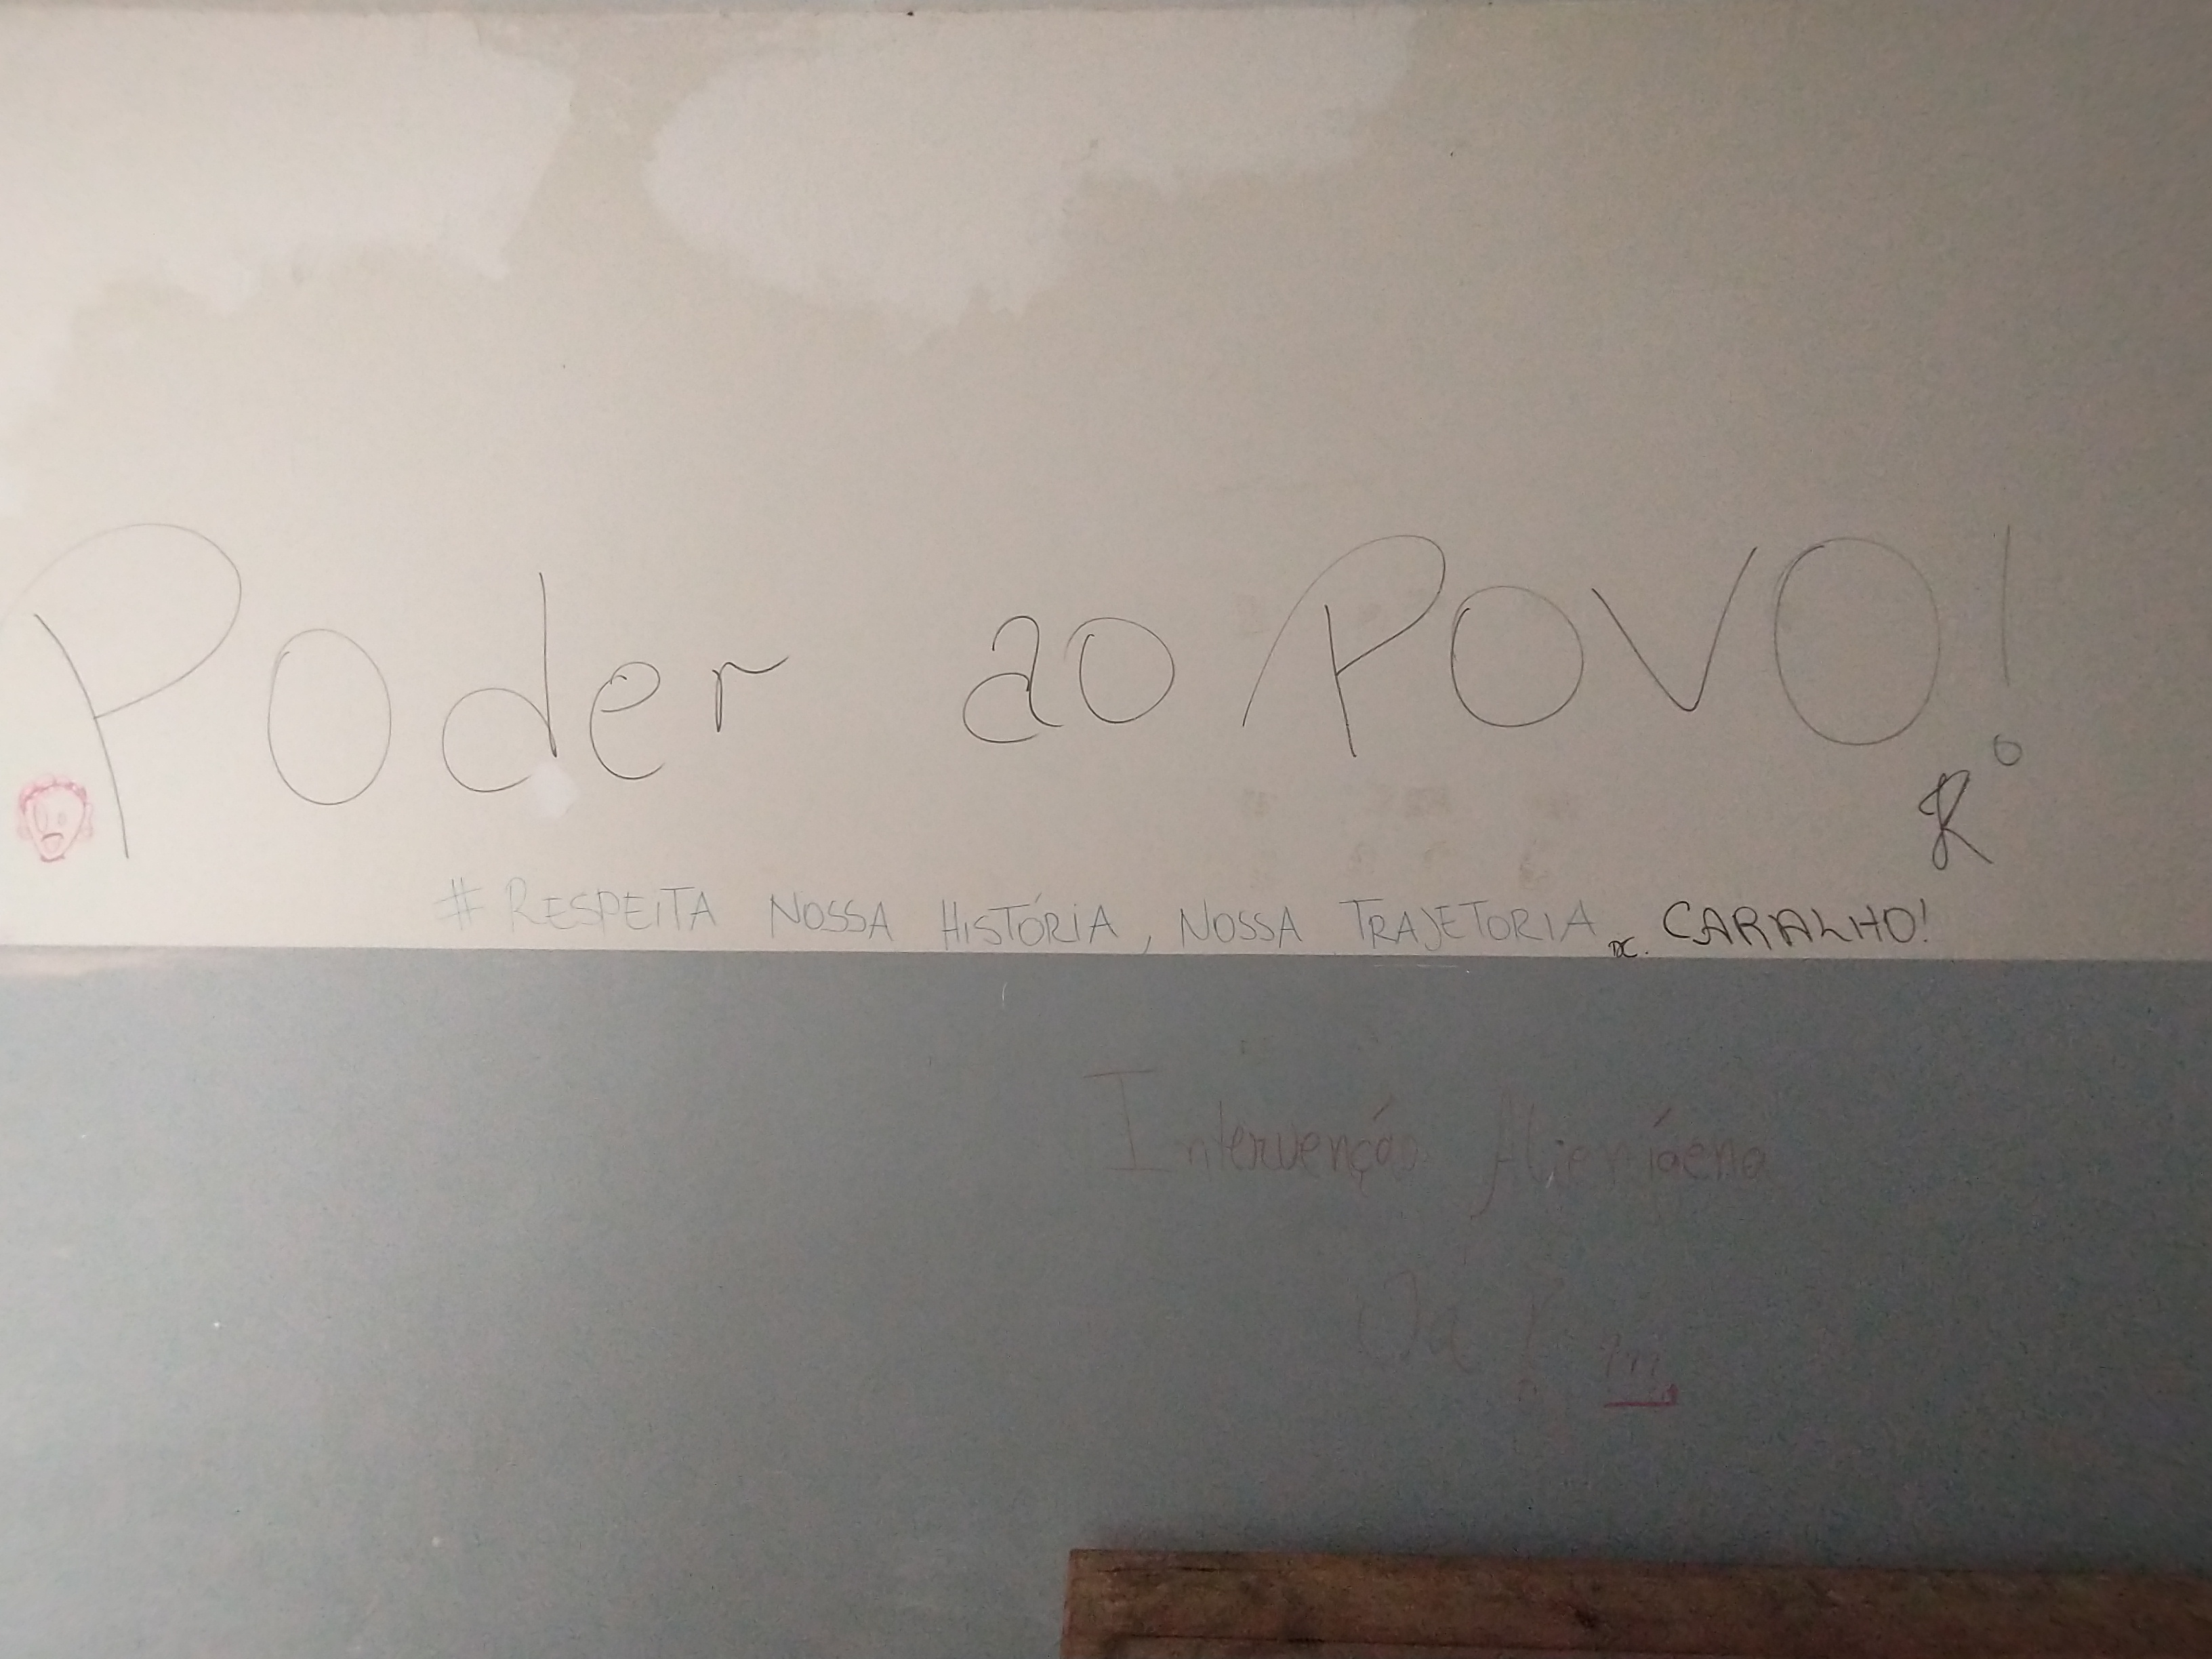 Poder ao POVO!
R
# RESPEITA NOSSA HISTÓRIA, NOSSA TRAJETORIA DC. CARALHO!
Intervenção Alienígena
Já!